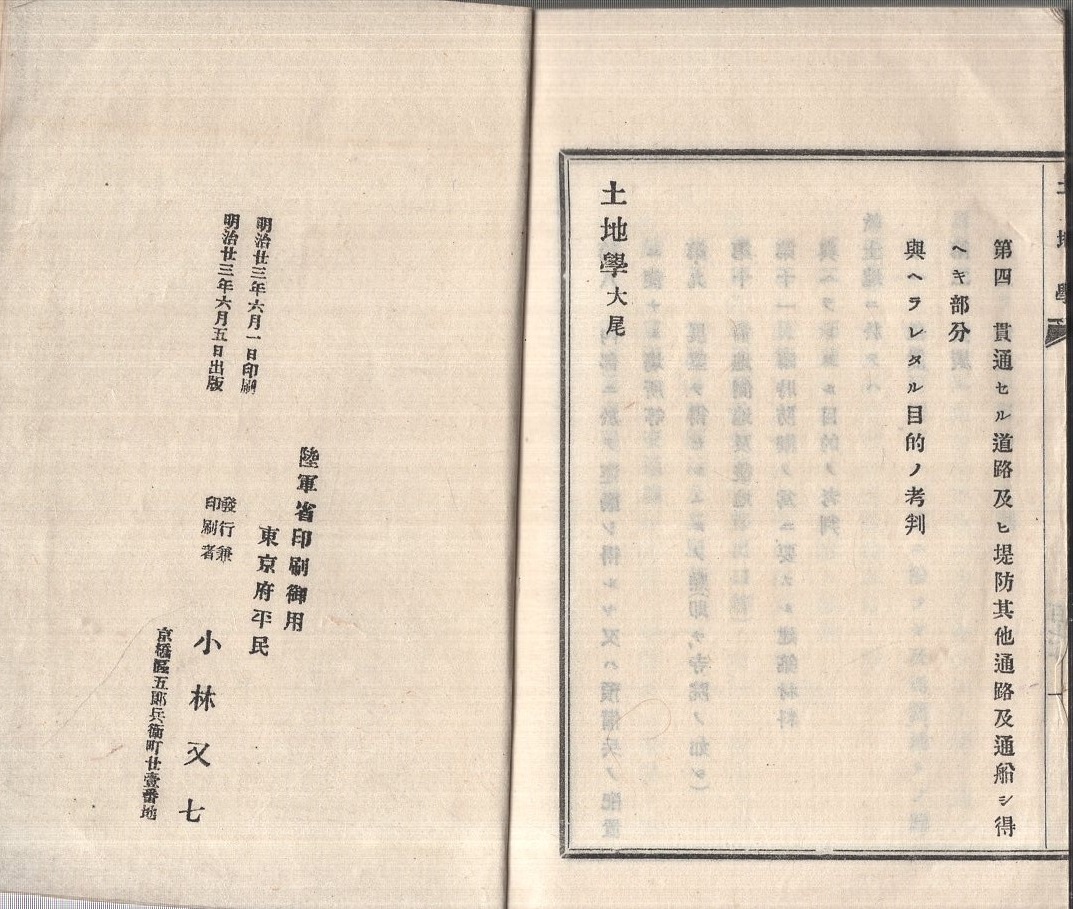 土地學
第四 貫通セル道路及ヒ堤防其他通路及通船シ得
ヘキ部分
與ヘラレタル目的ノ考判
土地學大尾
明治廿三年六月一日印刷
明治廿三年六月五日出版
陸軍省印刷御用
東京府平民
發行兼
印刷者
小林又七
京橋區五郎兵衛町廿壹番地